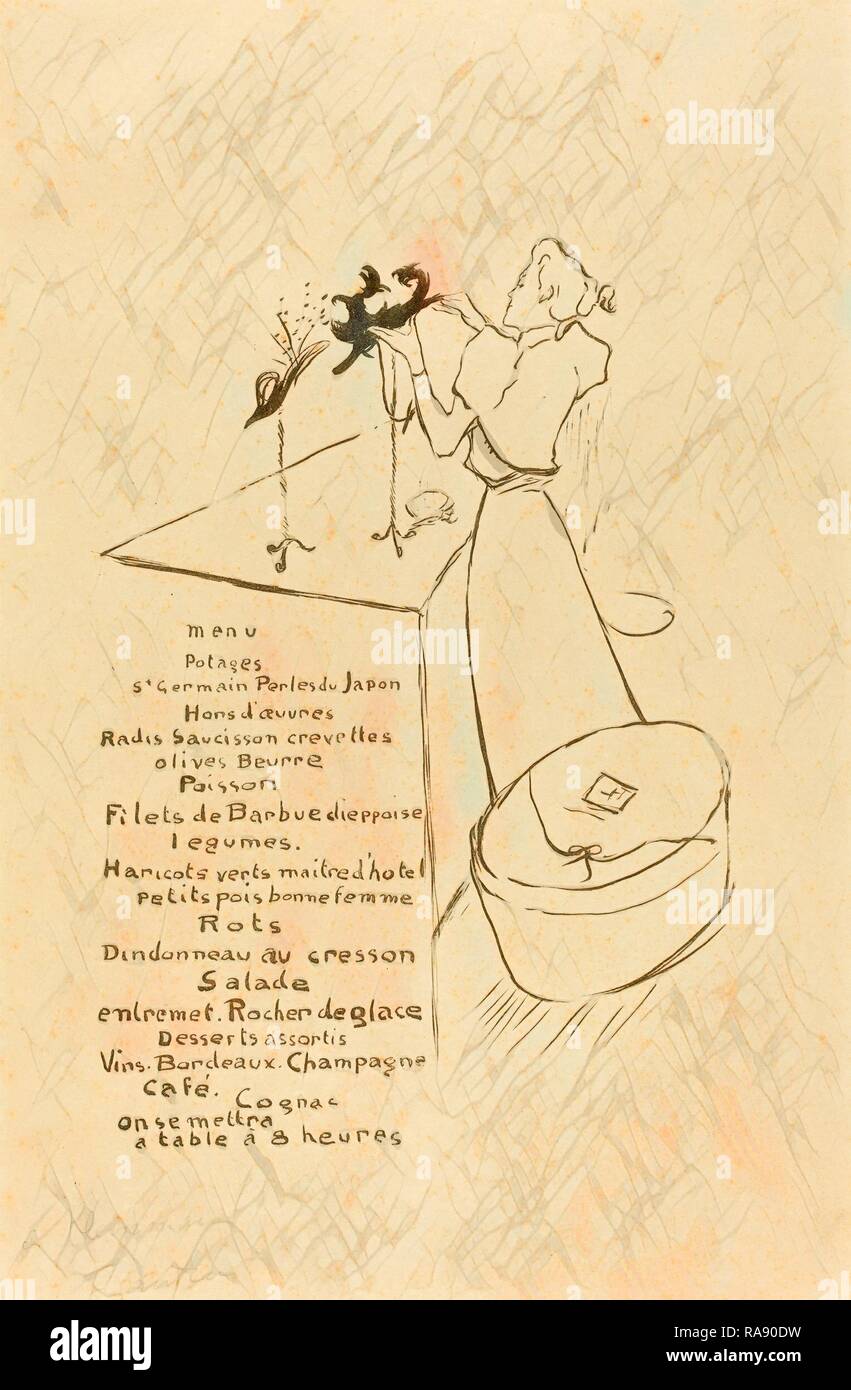 menu
Potages
St Germain Perles du Japon
Hors d'œuvres
Radis Saucisson crevettes
olives Beurre
Poisson
Filets de Barbue dieppoise
legumes.
Haricots verts maitre d'hotel
petits pois bonne femme
Rots
Dindonneau au cresson
Salade
entremet. Rocher de glace
Desserts assortis
Vins. Bordeaux. Champagne
Café. Cognac
on se mettra
a table à 8 heures
alamy
Image ID: RA90DW
www.alamy.com